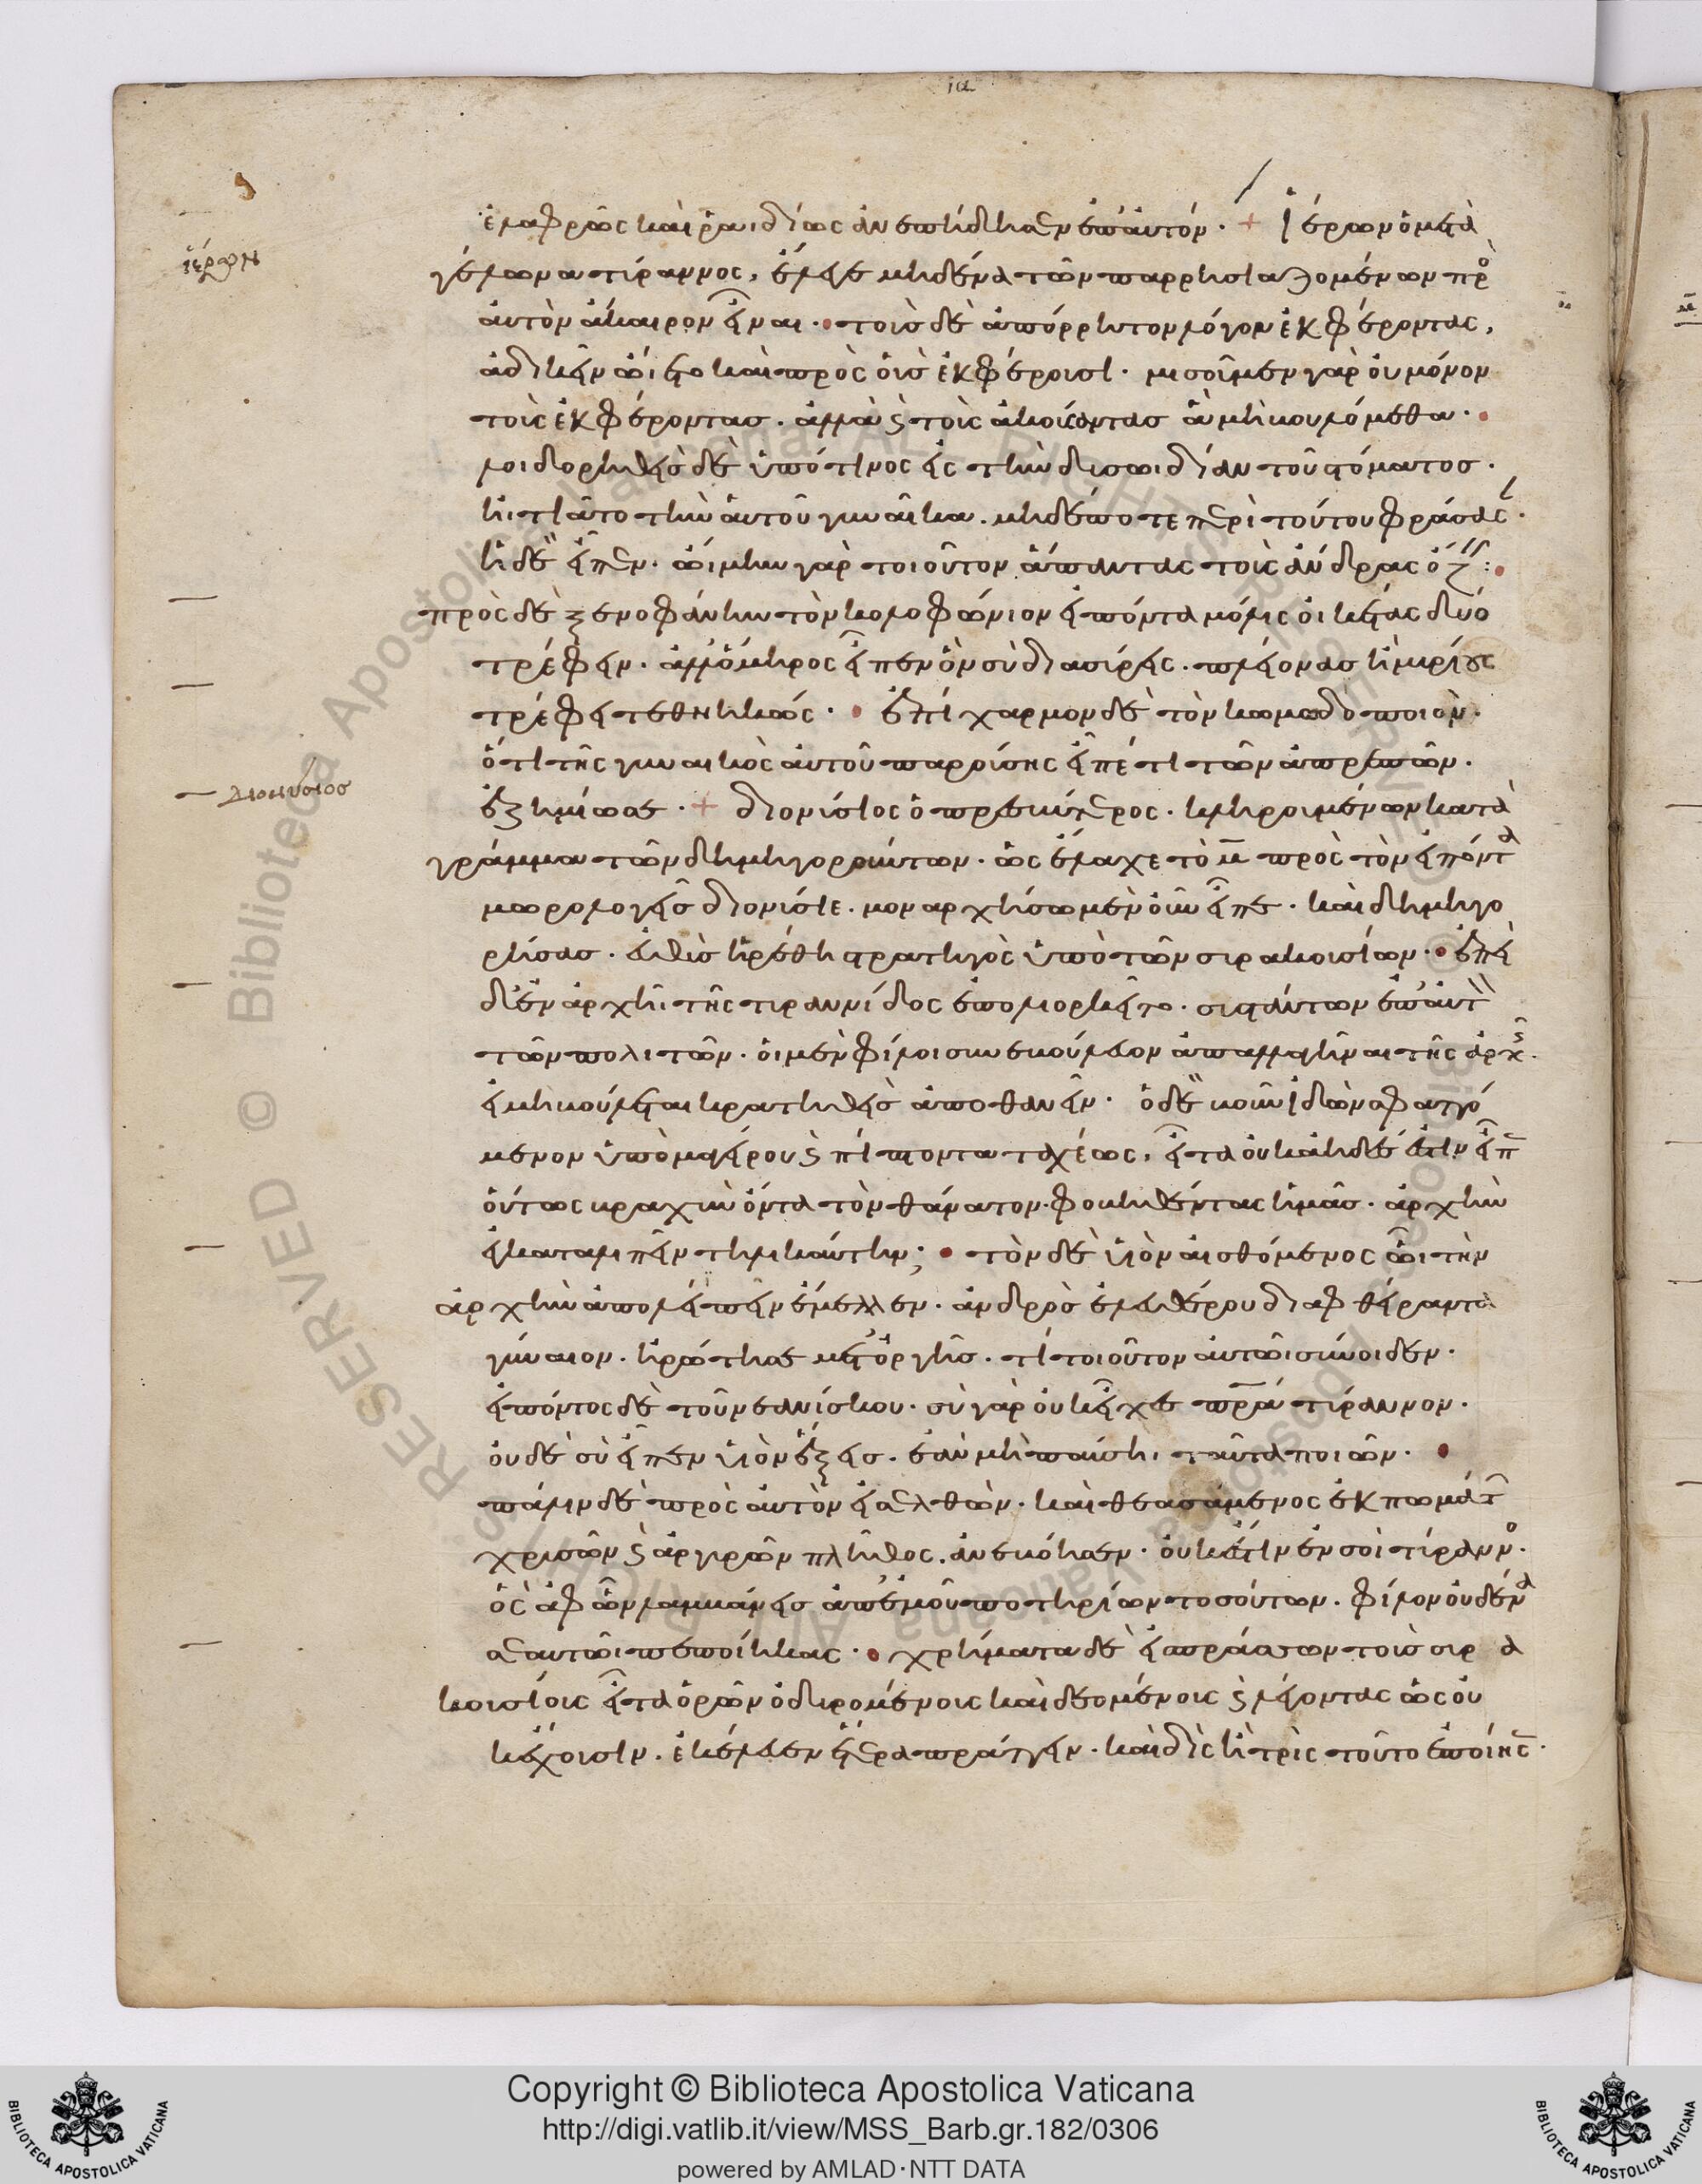 ια
ἐλαφρῶς καὶ ῥαιδίως ἀνεπήδησεν ἐπ' αὐτόν · + Ἱέρων ὁ μετὰ
ἱέρων
γέλωνα τύραννος, ἔλεγε μηδένα τῶν παρρησιαζομένων πρὸ
αὐτὸν ἄκαιρον εἶναι · τοὺς δὲ ἀπόρρητον λόγον ἐκφέροντας,
ἀδικεῖν ὤιετο καὶ πρὸς οὓς ἐκφέρουσι · μισοῦμεν γὰρ οὐ μόνον
τοὺς ἐκφέροντας · ἀλλὰ ϗ τοὺς ἀκούσαντας ἃ μὴ βουλόμεθα ·
λοιδορηθεὶς δὲ ὑπό τινος εἰς τὴν δυσωιδίαν τοῦ στόματος ·
ἠιτιᾶτο τὴν αὐτοῦ γυναῖκα · μηδέποτε περὶ τούτου φράσασ ·
ἡ δὲ εἶπεν · ὤιμην γὰρ τοιοῦτον ἅπαντας τοὺς ἄνδρας ὄζ :
πρὸς δὲ ξενοφάνην τὸν κολοφώνιον εἰπόντα μόλις οἰκέτας δύο
τρέφειν · ἀλλ' ὅμηρος εἶπεν ὃν σὺ διασύρεις · πλείονας ἢ μυρίους
τρέφει τεθνηκώς · ἐπίχαρμον δὲ τὸν κωμωδοποιὸν ·
ὅτι τῆς γυναικὸς αὐτοῦ παρούσης εἶπέ τι τῶν ἀπρεπῶν ·
Διονύσιος
ἐζημίωσε · + διονύσιος ὁ πρεσβύτερος · κληρουμένων κατὰ
γράμμα τῶν δημηγορούντων · ὡς ἔλαχε τὸ μ πρὸς τὸν εἰπόντα
μωρολογεῖς διονύσιε · μοναρχήσω μὲν οὖν εἶπε · καὶ δημηγο
ρήσας · εὐθὺς ἡιρέθη στρατηγὸς ὑπὸ τῶν συρακουσίων · ἐπεὶ
δ' ἐν ἀρχῆι τῆς τυραννίδος ἐπολιορκεῖτο · συστάντων ἐπ' αὐτ
τῶν πολιτῶν · οἱ μὲν φίλοι συνεβούλευον ἀπαλλαγῆναι τῆς ἀρχ ·
εἰ μὴ βούλεται κρατηθεὶς ἀποθανεῖν · ὁ δὲ βοῦν ἰδὼν σφαττό
μενον ὑπὸ μαγείρου ϗ πίπτοντα ταχέως, εἶτα οὐκ ἀηδές ἐστιν εἶπ
οὕτως βραχὺν ὄντα τὸν θάνατον · φοβηθέντας ἡμᾶς · ἀρχὴν
ἐκαταλιπεῖν τηλικαύτην; · τὸν δὲ υἱὸν αἰσθόμενος ὧι τὴν
ἀρχὴν ἀπολείπειν ἔμελλεν · ἀνδρὸς ἐλευθέρου διαφθείραντα
γύναιον · ἠρώτησε μετ' ὀργῆς · τί τοιοῦτον αὐτῶι σύνοιδεν ·
εἰπόντος δὲ τοῦ νεανίσκου · σὺ γὰρ οὐκ εἶχες πρα τύραννον ·
οὐδὲ σὺ εἶπεν υἱὸν ἕξεις · ἐὰν μὴ παύσηι ταῦτα ποιῶν ·
πάλιν δὲ πρὸς αὐτὸν εἰσελθὼν · καὶ θεασάμενος ἐκπωμάτ
χρυσῶν ϗ ἀργυρῶν πλῆθος · ἀνεβόησεν · οὐκ ἔστιν ἐν σοὶ τύρανν ·
ὃς ἀφ' ὧν λαμβάνεις ἀπ' ἐμοῦ ποτηρίων τοσούτων · φίλον οὐδένα
σεαυτῶι πεποίηκας · χρήματα δὲ εἰσπράσσων τοὺς συρα
κουσίους εἶτα ὁρῶν ὀδυρομένους καὶ δεομένους ϗ λέγοντας ὡς οὐ
κ ἔχουσιν · ἐκέλευεν ἕτερα πράττειν · καὶ δὶς ἢ τρὶς τοῦτο ἐποίησ ·
Copyright © Biblioteca Apostolica Vaticana
http://digi.vatlib.it/view/MSS_Barb.gr.182/0306
powered by AMLAD·NTT DATA
BIBLIOTECA APOSTOLICA VATICANA
BIBLIOTECA APOSTOLICA VATICANA